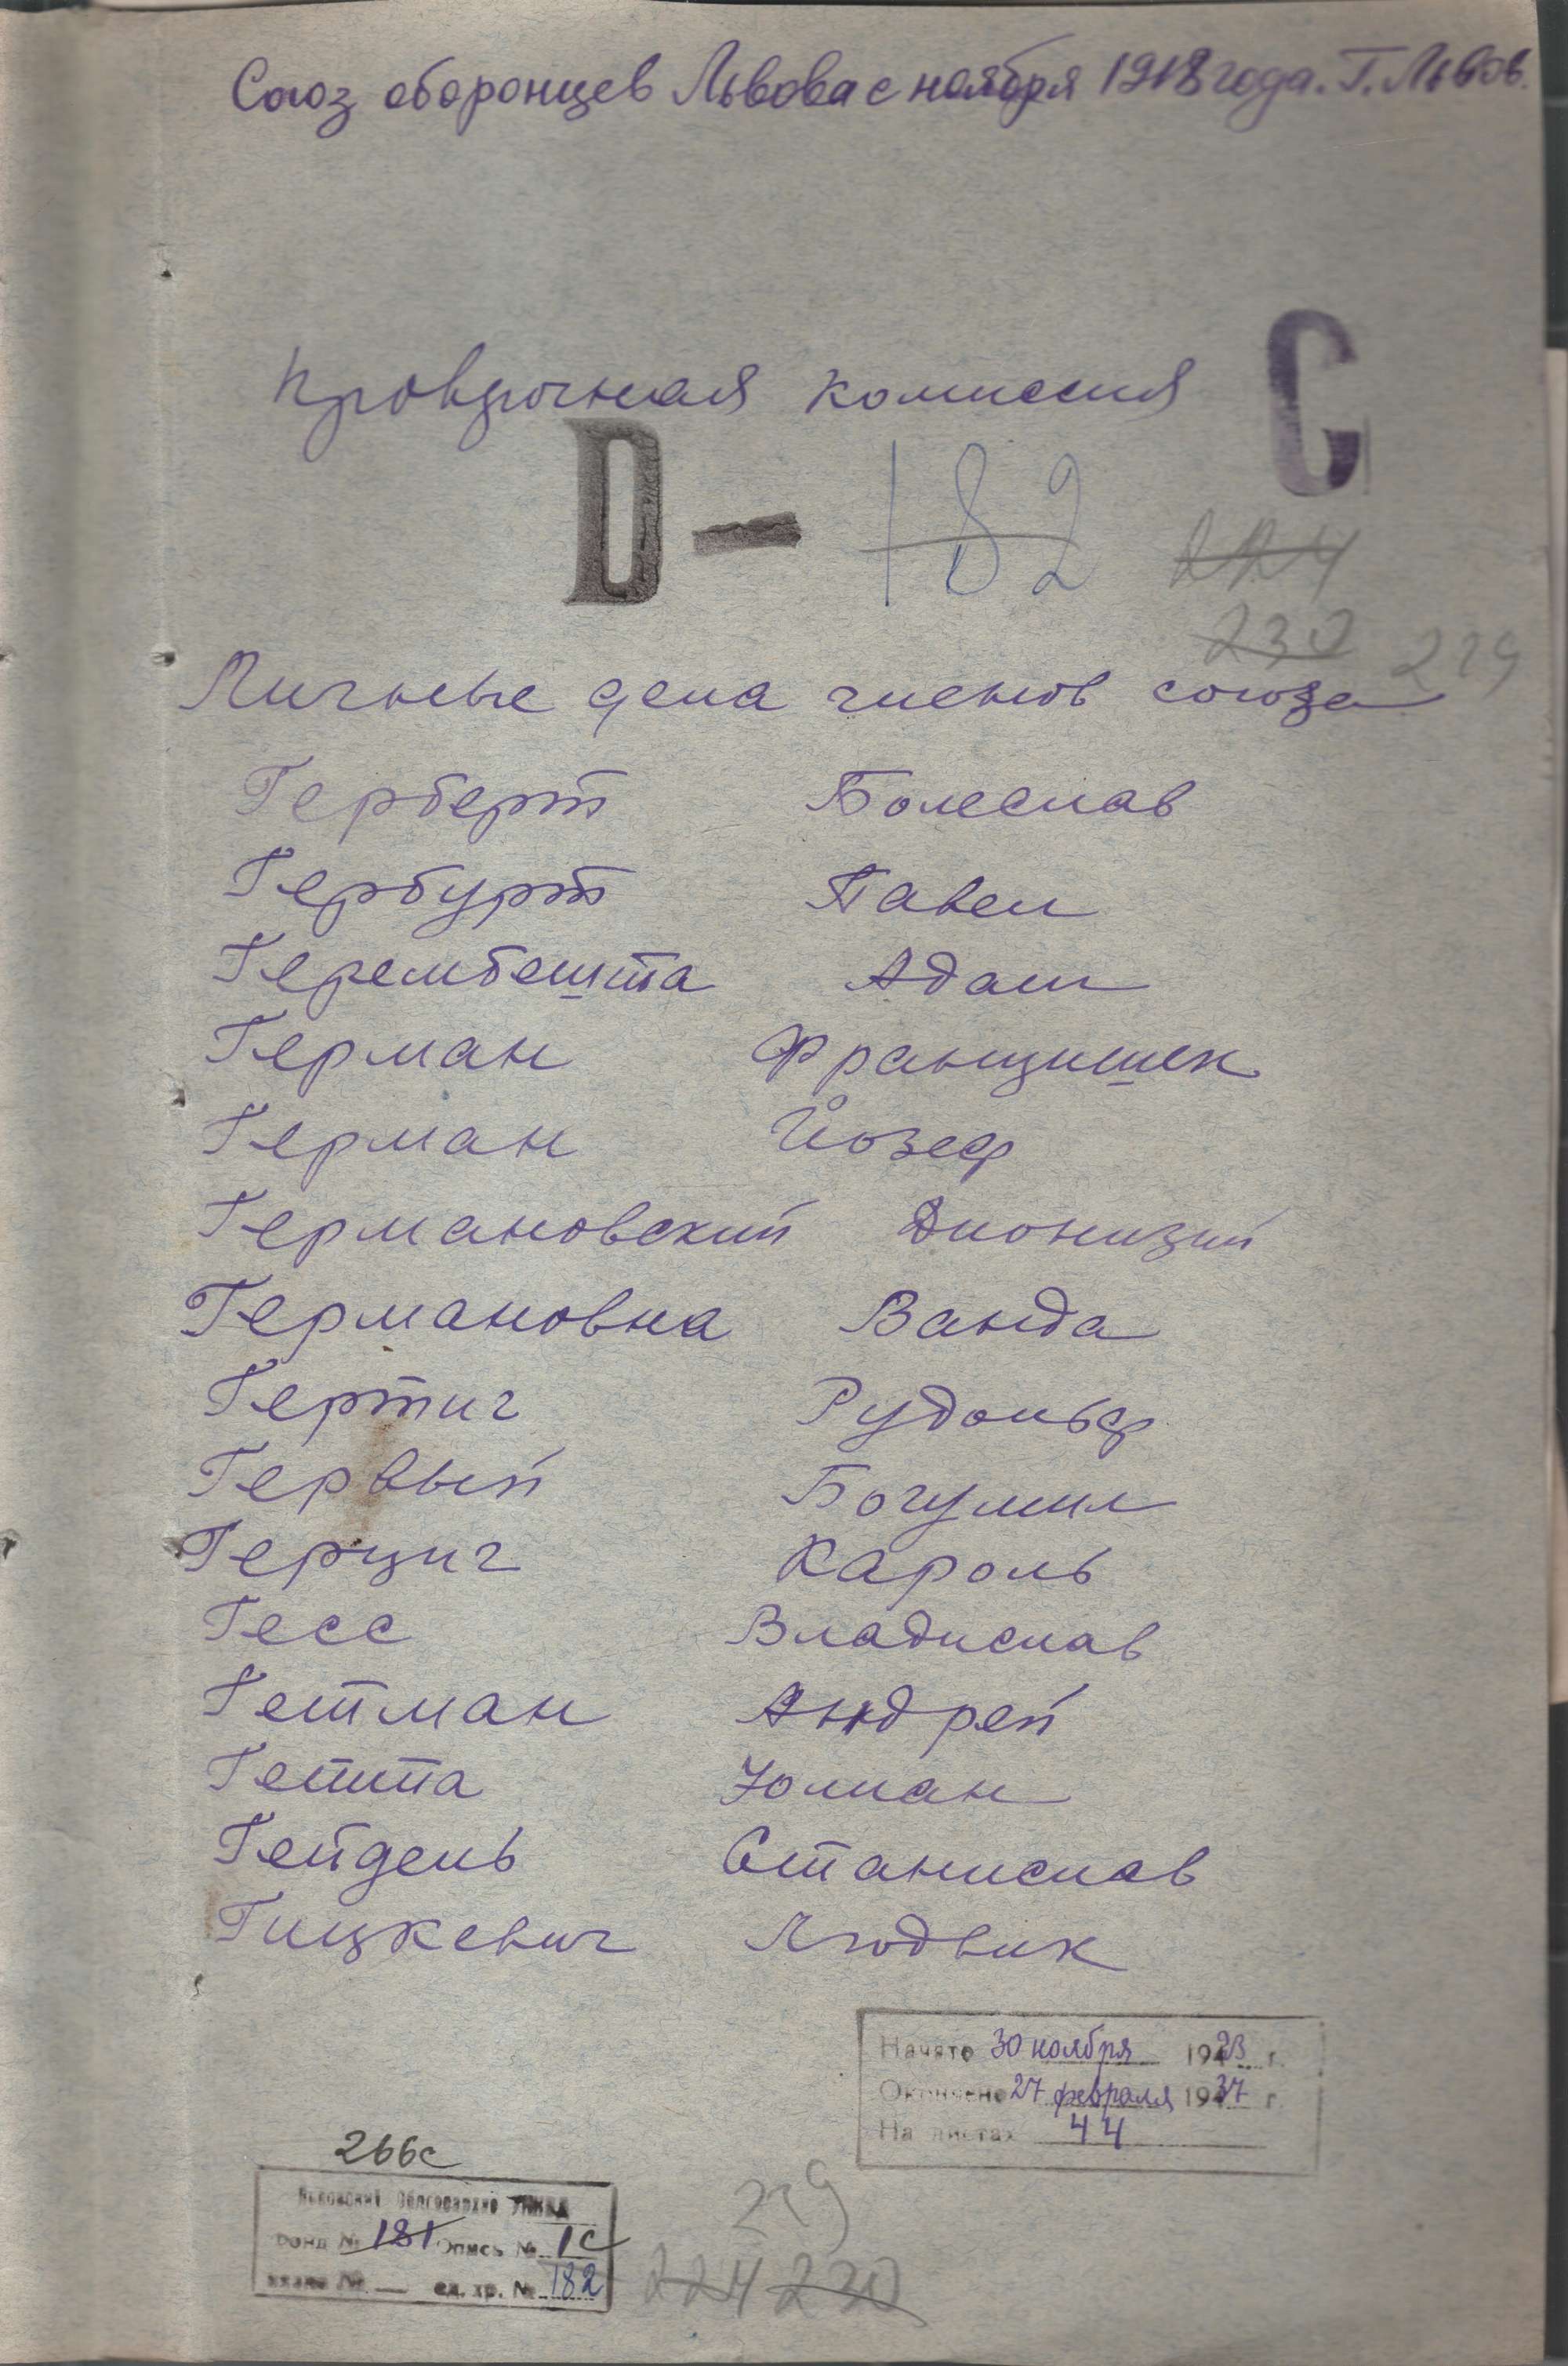 Союз оборонцев Львова с ноября 1918 года. Г. Львов.
Проверочная комиссия С
D — 182 224
230 229
Личные дела членов союза
Герберт Болеслав
Гербурт Павел
Герембешта Адам
Герман Францишек
Герман Йозеф
Германовский Дионизий
Германовна Ванда
Гертиг Рудольф
Гервый Богумил
Герциг Кароль
Гесс Владислав
Гетман Андрей
Гетта Юлиан
Гейдель Станислав
Гицкевич Людвик
Начато 30 ноября 1923 г.
Окончено 27 февраля 1937 г.
На листах 44
266с
Львовский Облгосархив УНКВД
Фонд № 181 Опись № 1с
связка № — ед. хр. № 182
229
224 230